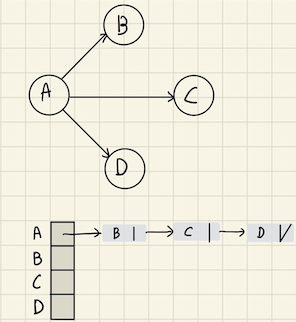 B
A
C
D
A B C D
B
C
D